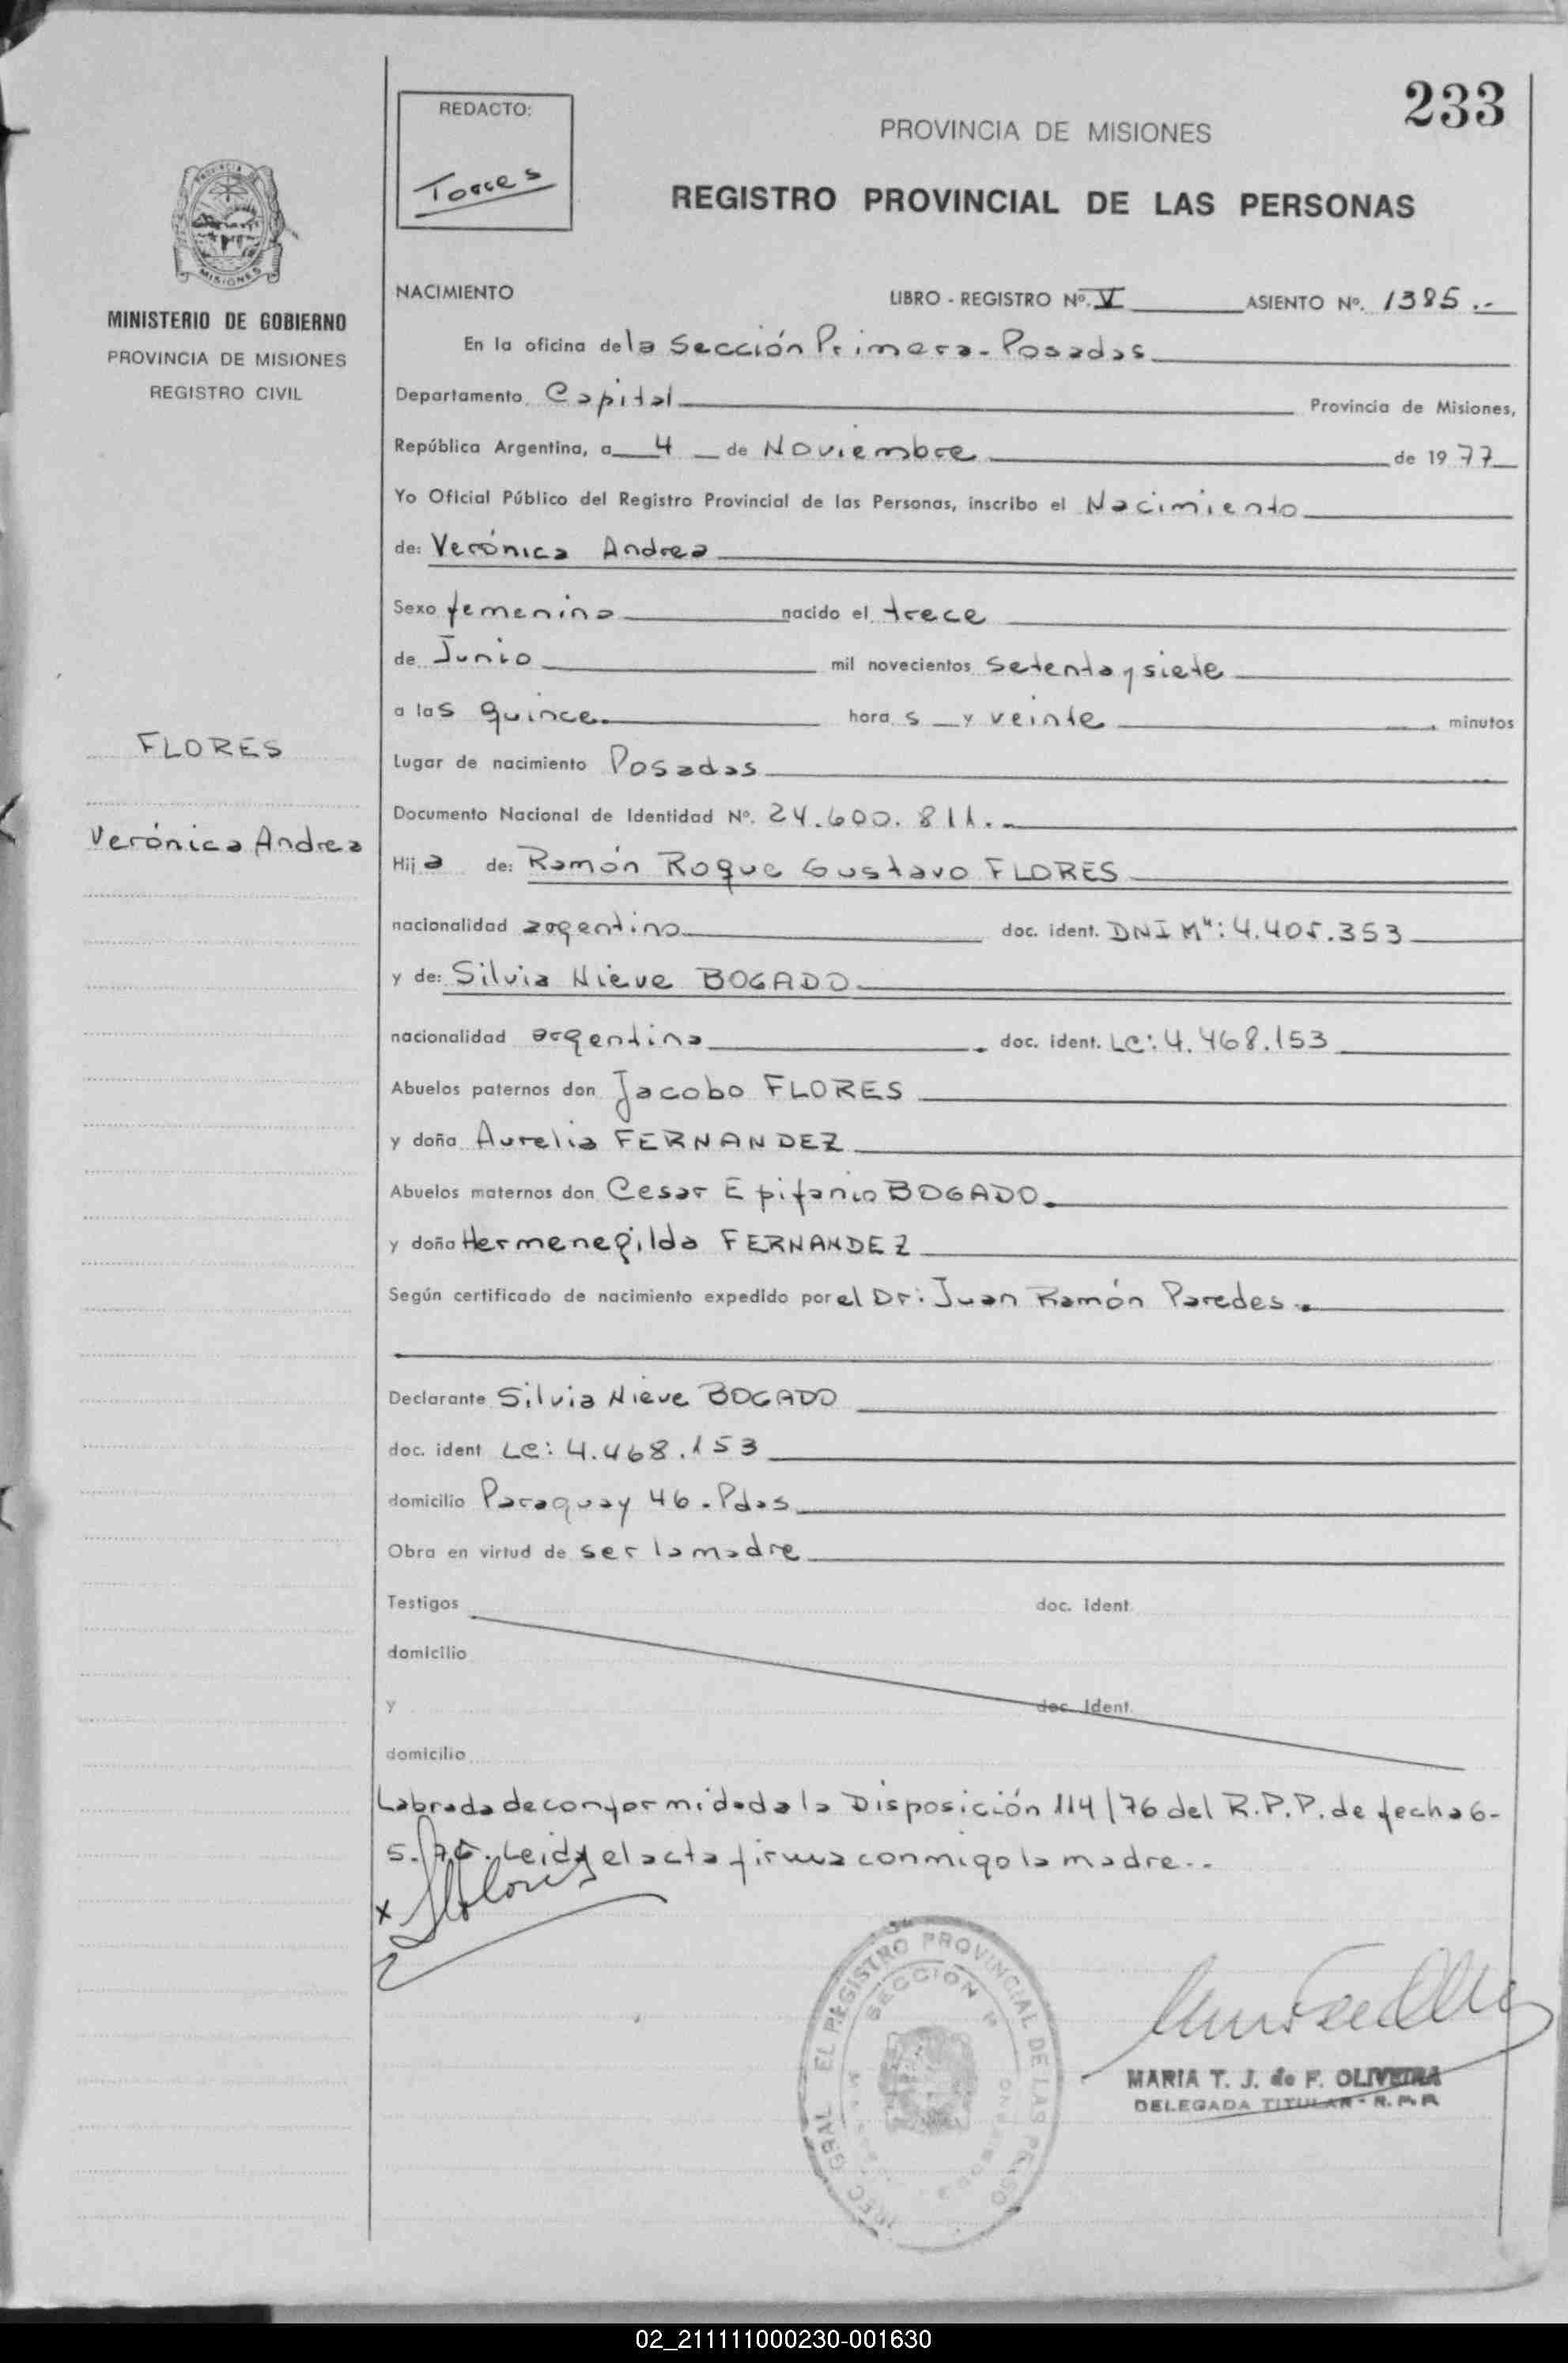 233
REDACTO:
Torres
PROVINCIA DE MISIONES
REGISTRO PROVINCIAL DE LAS PERSONAS
PROVINCIA DE
MISIONES
MINISTERIO DE GOBIERNO
PROVINCIA DE MISIONES
REGISTRO CIVIL
FLORES
Verónica Andrea
NACIMIENTO LIBRO - REGISTRO Nº. V ASIENTO Nº. 1385.-
En la oficina de la Sección Primera - Posadas
Departamento Capital Provincia de Misiones,
República Argentina, a 4 de Noviembre de 1977
Yo Oficial Público del Registro Provincial de las Personas, inscribo el Nacimiento
de: Verónica Andrea
Sexo femenino nacido el trece
de Junio mil novecientos setenta y siete
a las quince hora s y veinte minutos
Lugar de nacimiento Posadas
Documento Nacional de Identidad Nº. 24.600.811.-
Hij a de: Ramón Roque Gustavo FLORES
nacionalidad argentino doc. ident. DNI Mº: 4.405.353
y de: Silvia Nieve BOGADO
nacionalidad argentina doc. ident. LC: 4.468.153
Abuelos paternos don Jacobo FLORES
y doña Aurelia FERNANDEZ
Abuelos maternos don Cesar Epifanio BOGADO
y doña Hermenegilda FERNANDEZ
Según certificado de nacimiento expedido por el Dr: Juan Ramón Paredes
Declarante Silvia Nieve BOGADO
doc. ident LC: 4.468.153
domicilio Paraguay 46 - Pdas
Obra en virtud de ser la madre
Testigos doc. ident.
domicilio
y doc. Ident.
domicilio
Labrada de conformidad a la Disposición 114/76 del R.P.P. de fecha 6-
5. Leida el acta firma conmigo la madre.-
x
EL REGISTRO PROVINCIAL DE LAS PERSO
GRAL
SECCION 1ª
MARIA T. J. de F. OLIVEIRA
DELEGADA TITULAR - R. P. P.
02_211111000230-001630